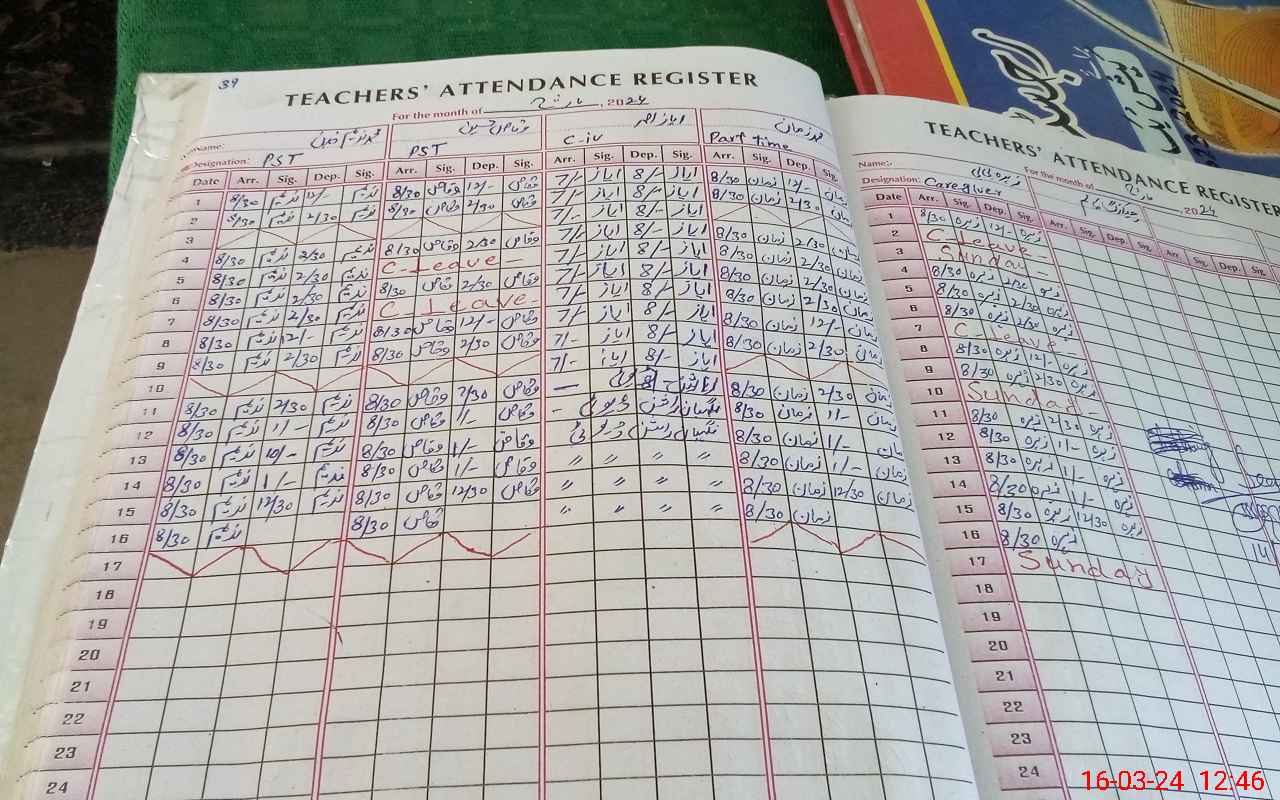 39
TEACHERS' ATTENDANCE REGISTER
For the month of مارچ, 2024
Name: وقاص حسین ایاز احمد محمد زمان
Designation: PST PST C-iv Part time
Date Arr. Sig. Dep. Sig. Arr. Sig. Dep. Sig. Arr. Sig. Dep. Sig. Arr. Sig. Dep. Sig.
1 8/30 ندیم 12/- ندیم 8/30 وقاص 12/- وقاص 7/- ایاز 8/- ایاز 8/30 زمان 12/- زمان
2 8/30 ندیم 2/30 ندیم 8/30 وقاص 2/30 وقاص 7/- ایاز 8/- ایاز 8/30 زمان 2/30 زمان
3 7/- ایاز 8/- ایاز
4 8/30 ندیم 2/30 ندیم 8/30 وقاص 2/30 وقاص 7/- ایاز 8/- ایاز 8/30 زمان 2/30 زمان
5 8/30 ندیم 2/30 ندیم C-Leave- 7/- ایاز 8/- ایاز 8/30 زمان 2/30 زمان
6 8/30 ندیم 2/30 ندیم 8/30 وقاص 2/30 وقاص 7/- ایاز 8/- ایاز 8/30 زمان 2/30 زمان
7 8/30 ندیم 2/30 ندیم C-Leave- 7/- ایاز 8/- ایاز 8/30 زمان 2/30 زمان
8 8/30 ندیم 12/- ندیم 8/30 وقاص 12/- وقاص 7/- ایاز 8/- ایاز 8/30 زمان 12/- زمان
9 8/30 ندیم 2/30 ندیم 8/30 وقاص 2/30 وقاص 7/- ایاز 8/- ایاز 8/30 زمان 2/30 زمان
10 7/- ایاز 8/- ایاز
11 8/30 ندیم 2/30 ندیم 8/30 وقاص 2/30 وقاص — راشن ڈیوٹی 8/30 زمان 2/30 زمان
12 8/30 ندیم 1/- ندیم 8/30 وقاص 1/- وقاص - نگہبان راشن ڈیوٹی 8/30 زمان 1/- زمان
13 8/30 ندیم 10/- ندیم 8/30 وقاص 1/- وقاص نگہبان راشن ڈیوٹی 8/30 زمان 1/- زمان
14 8/30 ندیم 1/- ندیم 8/30 وقاص 1/- وقاص " " " " 8/30 زمان 1/- زمان
15 8/30 ندیم 12/30 ندیم 8/30 وقاص 12/30 وقاص " " " " 8/30 زمان 12/30 زمان
16 8/30 ندیم 8/30 وقاص " " " " 8/30 زمان
17
18
19
20
21
22
23
24
TEACHERS' ATTENDANCE REGISTER
For the month of مارچ, 2024
Name:
Designation: Caregiver
Date Arr. Sig. Dep. Sig. Arr. Sig. Dep. Sig. Arr. Sig. Dep. Sig.
1 8/30 12/-
2 C-Leave-
3 Sunday
4 8/30 2/30
5 8/30 2/30
6 8/30 2/30
7 C-Leave-
8 8/30 12/-
9 8/30 2/30
10 Sunday-
11 8/30 2/30
12 8/30 1/-
13 8/30 1/-
14 8/30 1/-
15 8/30 12/30
16 8/30
17 Sunday
18
19
20
21
22
23
24
16-03-24 12:46